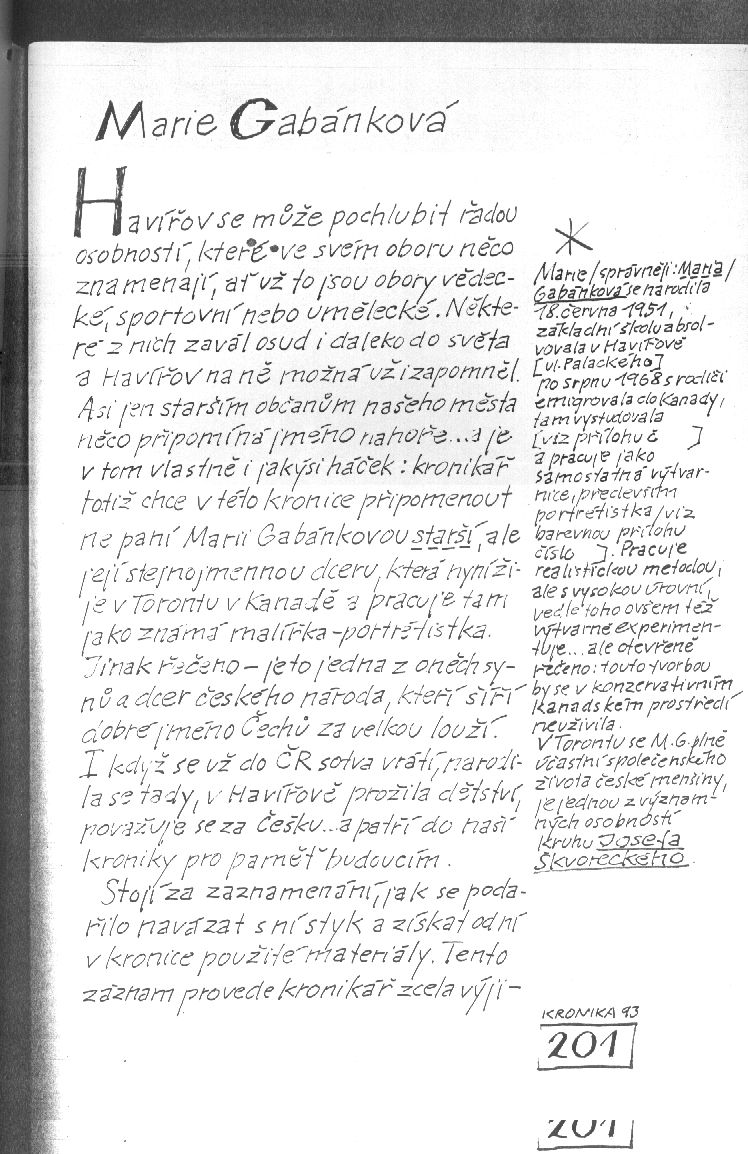 Marie Gabánková
Havířov se může pochlubit řadou
osobností, které ve svém oboru něco
znamenají, ať už to jsou obory vědec-
ké, sportovní nebo umělecké. Někte-
ré z nich zavál osud i daleko do světa
a Havířov na ně možná už i zapomněl.
Asi jen starším občanům našeho města
něco připomíná jméno nahoře...a je
v tom vlastně i jakýsi háček: kronikář
totiž chce v této kronice připomenout
ne paní Marii Gabánkovou starší, ale
její stejnojmennou dceru, která nyní ži-
je v Torontu v Kanadě a pracuje tam
jako známá malířka-portrétistka.
Jinak řečeno – je to jedna z oněch sy-
nů a dcer českého národa, kteří šíří
dobré jméno Čechů za velkou louží.
I když se už do ČR sotva vrátí, narodi-
la se tady, v Havířově prožila dětství,
považuje se za Češku...a patří do naší
kroniky pro paměť budoucím.
Stojí za zaznamenání, jak se poda-
řilo navázat s ní styk a získat od ní
v kronice použité materiály. Tento
záznam provede kronikář zcela výji-
Marie/správněji: Maria/
Gabánková se narodila
18. června 1951,
základní školu absol-
vovala v Havířově
[ul. Palackého]
po srpnu 1968 s rodiči
emigrovala do Kanady,
tam vystudovala
[viz přílohu č ]
a pracuje jako
samostatná výtvar-
nice, především
portrétistka/viz
barevnou přílohu
číslo ]. Pracuje
realistickou metodou,
ale s vysokou úrovní,
vedle toho ovšem též
výtvarně experimen-
tuje...ale otevřeně
řečeno: touto tvorbou
by se v konzervativním
kanadském prostředí
neuživila.
V Torontu se M.G. plně
účastní společenského
života české menšiny,
je jednou z význam-
ných osobností
kruhu Josefa
Škvoreckého.
KRONIKA 93
201
201